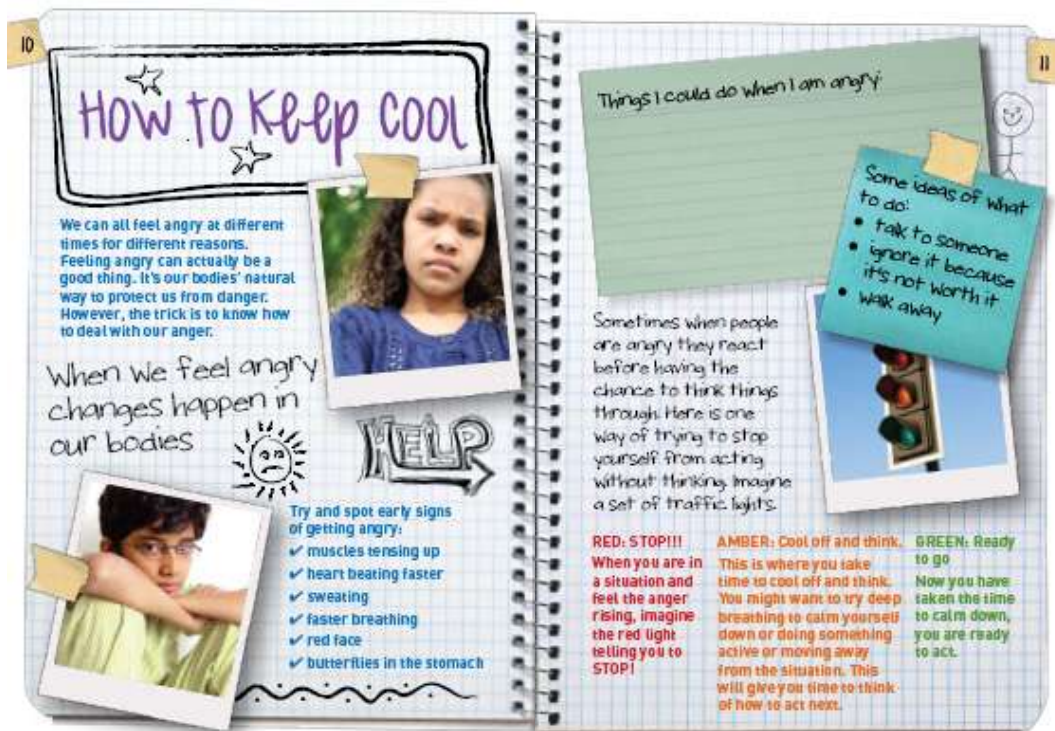 10
How to keep cool
We can all feel angry at different
times for different reasons.
Feeling angry can actually be a
good thing. It's our bodies' natural
way to protect us from danger.
However, the trick is to know how
to deal with our anger.
When we feel angry
changes happen in
our bodies
HELP
Try and spot early signs
of getting angry:
✔ muscles tensing up
✔ heart beating faster
✔ sweating
✔ faster breathing
✔ red face
✔ butterflies in the stomach
11
Things I could do when I am angry:
Some ideas of what
to do:
• talk to someone
• ignore it because
it's not worth it
• walk away
Sometimes when people
are angry they react
before having the
chance to think things
through. Here is one
way of trying to stop
yourself from acting
without thinking. Imagine
a set of traffic lights.
RED: STOP!!!
When you are in
a situation and
feel the anger
rising, imagine
the red light
telling you to
STOP!
AMBER: Cool off and think.
This is where you take
time to cool off and think.
You might want to try deep
breathing to calm yourself
down or doing something
active or moving away
from the situation. This
will give you time to think
of how to act next.
GREEN: Ready
to go
Now you have
taken the time
to calm down,
you are ready
to act.